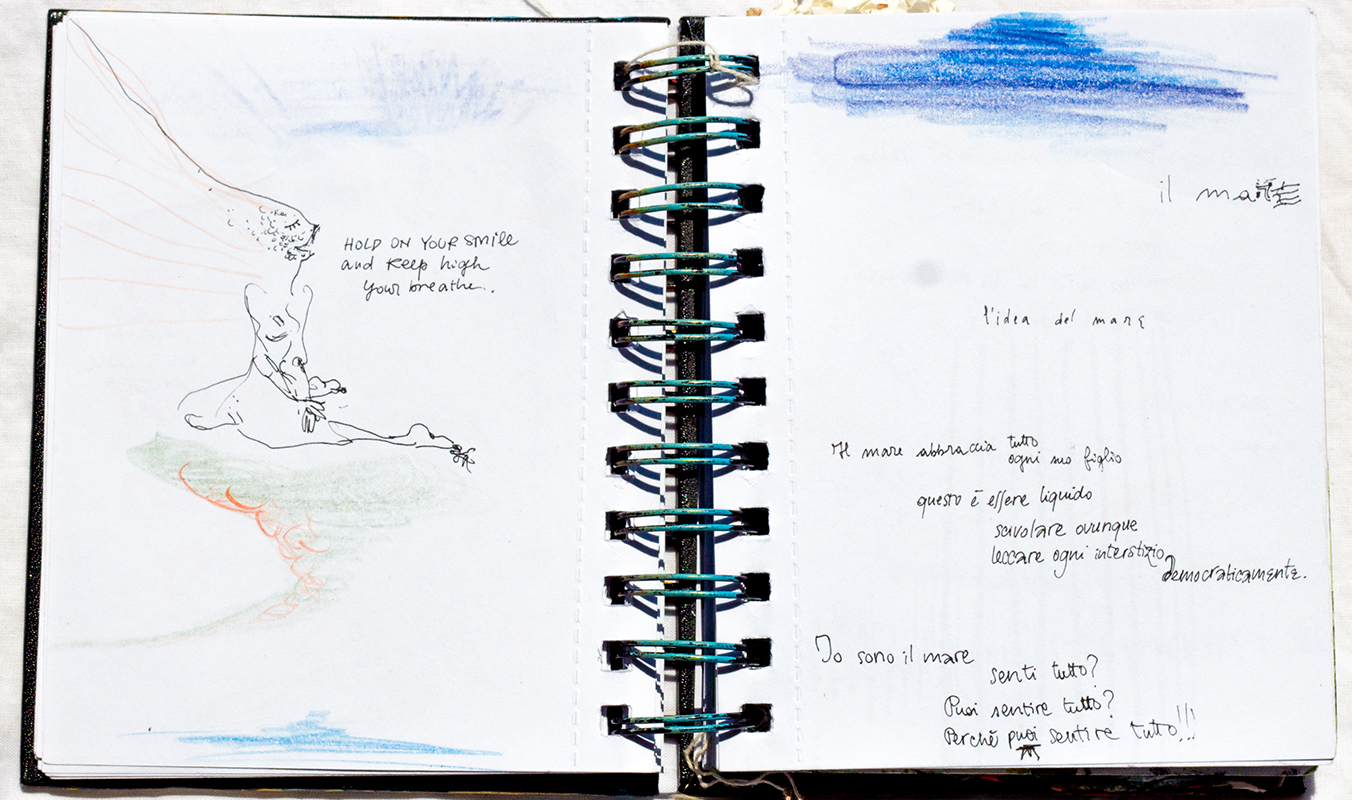 HOLD ON YOUR SMILE
and keep high
your breathe..
il mare
l'idea del mare
Il mare abbraccia tutto
ogni suo figlio
questo è essere liquido
scivolare ovunque
leccare ogni interstizio
democraticamente.
Io sono il mare
senti tutto?
Puoi sentire tutto?
Perché puoi sentire tutto!!!